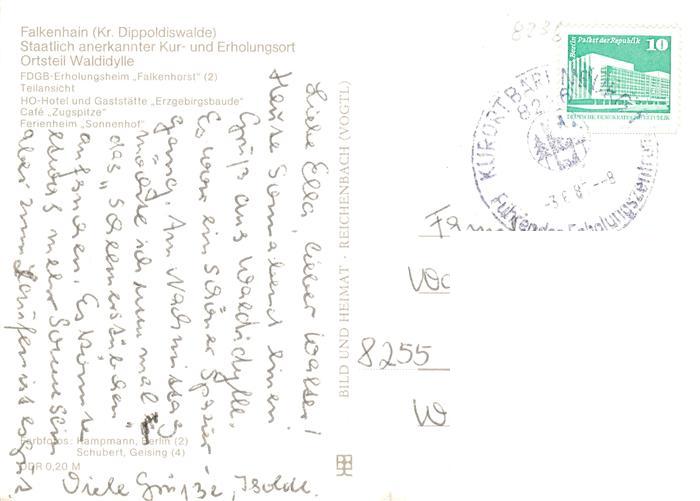 Falkenhain (Kr. Dippoldiswalde)
Staatlich anerkannter Kur- und Erholungsort
Ortsteil Waldidylle
FDGB-Erholungsheim „Falkenhorst“ (2)
Teilansicht
HO-Hotel und Gaststätte „Erzgebirgsbaude“
Café „Zugspitze“
Ferienheim „Sonnenhof“
Liebe Ella, lieber Walter!
Heute Sonnabend einen
Gruß aus Waldidylle.
Es war ein schöner Spazier-
gang. Am Nachmittag
möchte ich nun mal
das
ansehen. Es könnte
etwas mehr Sonne sein
aber zum Laufen ist es gut
Viele Grüße, Isolde.
Farbfotos: Kampmann, Berlin (2)
Schubert, Geising (4)
DDR 0,20 M
BILD UND HEIMAT · REICHENBACH (VOGTL)
Berlin Palast der Republik
10
DEUTSCHE DEMOKRATISCHE REPUBLIK
KURORT BÄRENBURG
Führendes Erholungszentrum
8255